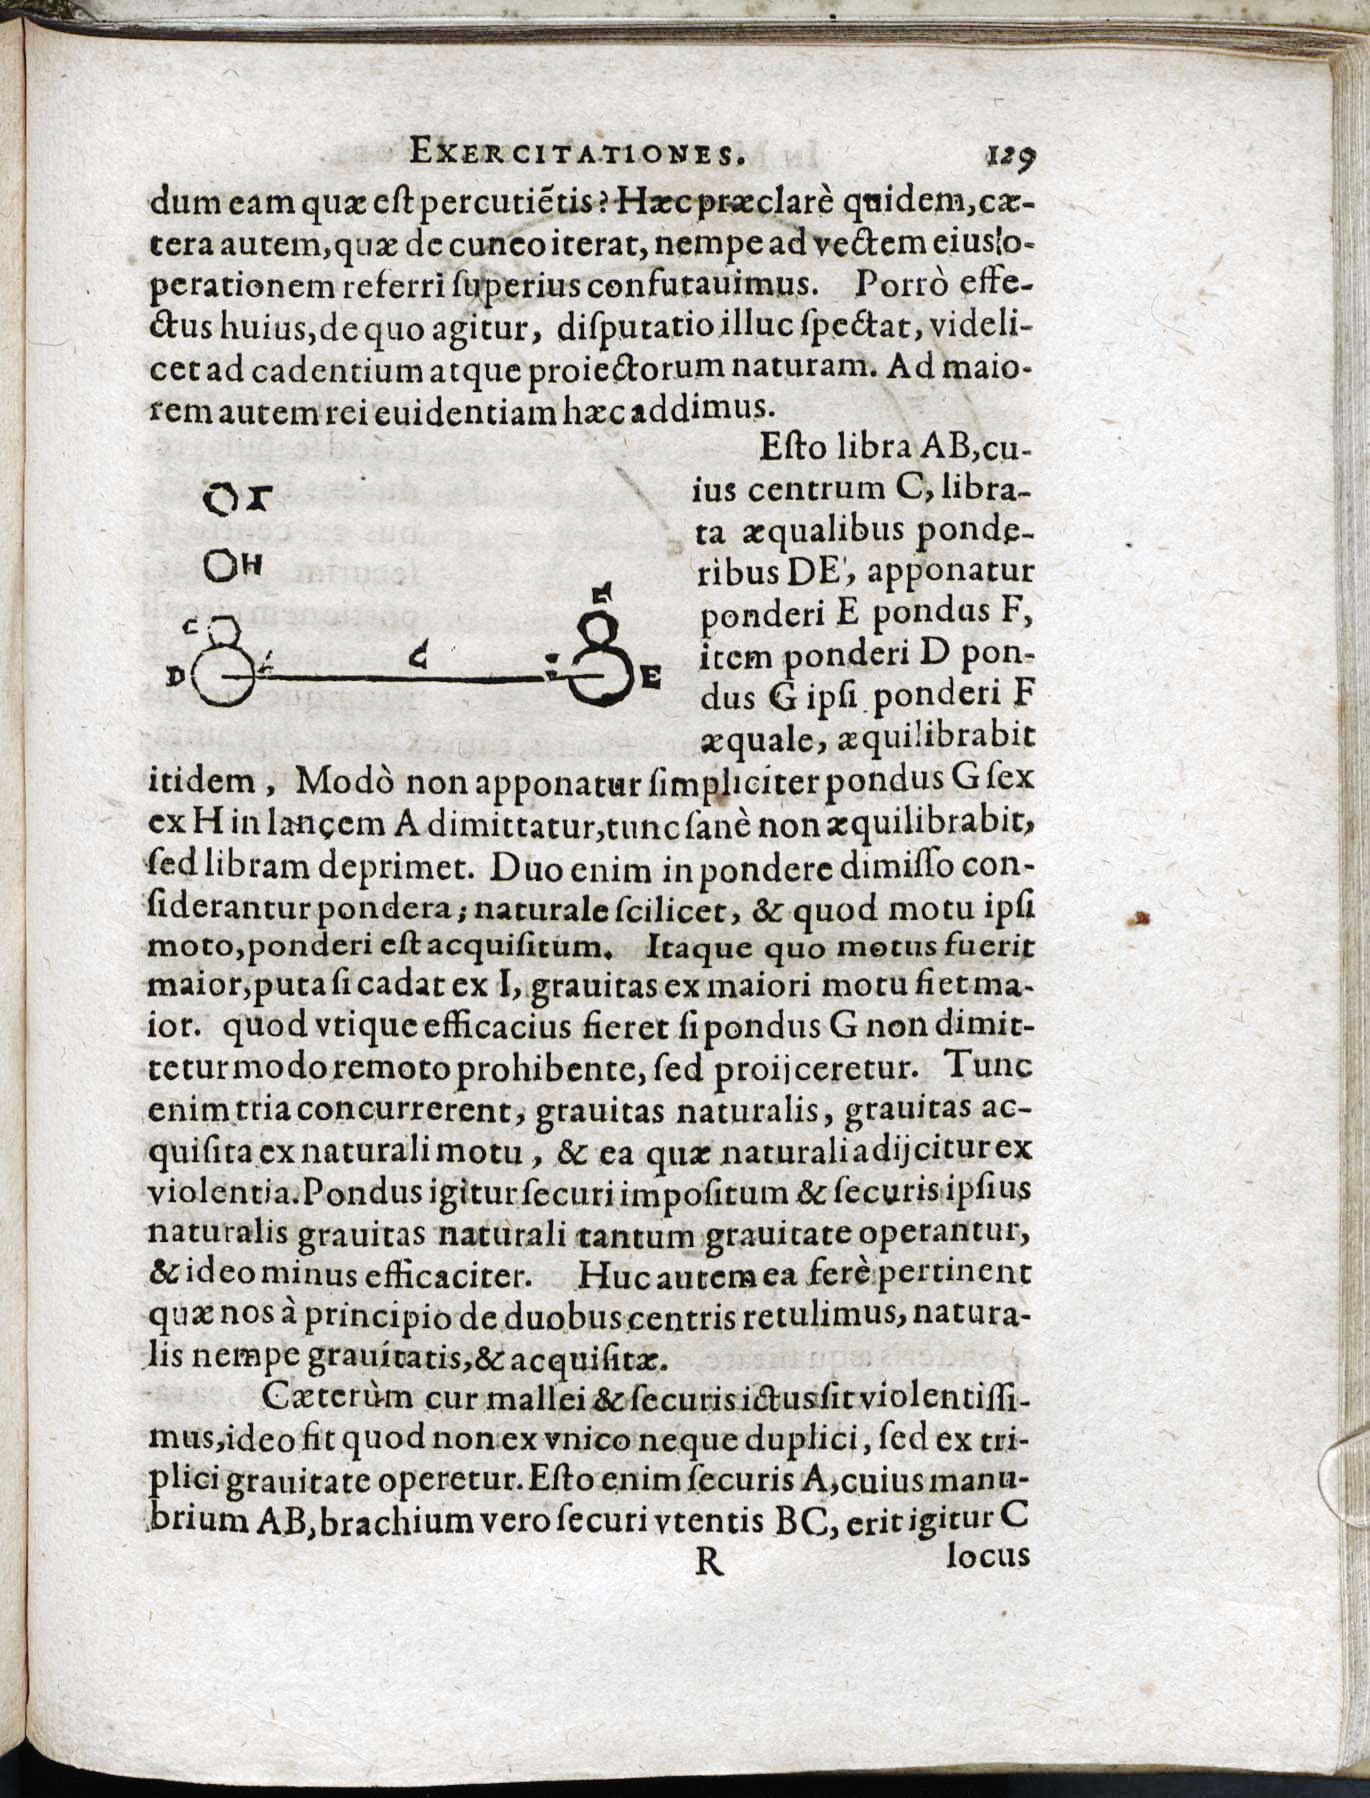 EXERCITATIONES. 129
dum eam quæ eſt percutiẽtis? Hæc præclarè quidem, cæ-
tera autem, quæ de cuneo iterat, nempe ad vectem eius o-
perationem referri ſuperius confutauimus. Porrò effe-
ctus huius, de quo agitur, diſputatio illuc ſpectat, videli-
cet ad cadentium atque proiectorum naturam. Ad maio-
rem autem rei euidentiam hæc addimus.
Eſto libra AB, cu-
ius centrum C, libra-
ta æqualibus ponde-
ribus DE, apponatur
ponderi E pondus F,
item ponderi D pon-
dus G ipſi ponderi F
æquale, æquilibrabit
I
H
D
E
itidem, Modò non apponatur ſimpliciter pondus G ſex
ex H in lançem A dimittatur, tunc ſanè non æquilibrabit,
ſed libram deprimet. Duo enim in pondere dimiſſo con-
ſiderantur pondera; naturale ſcilicet, & quod motu ipſi
moto, ponderi eſt acquiſitum. Itaque quo motus fuerit
maior, puta ſi cadat ex I, grauitas ex maiori motu fiet ma-
ior. quod vtique efficacius fieret ſi pondus G non dimit-
tetur modo remoto prohibente, ſed proijceretur. Tunc
enim tria concurrerent, grauitas naturalis, grauitas ac-
quiſita ex naturali motu, & ea quæ naturali adijcitur ex
violentia. Pondus igitur ſecuri impoſitum & ſecuris ipſius
naturalis grauitas naturali tantum grauitate operantur,
& ideo minus efficaciter. Huc autem ea ferè pertinent
quæ nos à principio de duobus centris retulimus, natura-
lis nempe grauitatis, & acquiſitæ.
Cæterùm cur mallei & ſecuris ictus ſit violentiſſi-
mus, ideo fit quod non ex vnico neque duplici, ſed ex tri-
plici grauitate operetur. Eſto enim ſecuris A, cuius manu-
brium AB, brachium vero ſecuri vtentis BC, erit igitur C
R locus